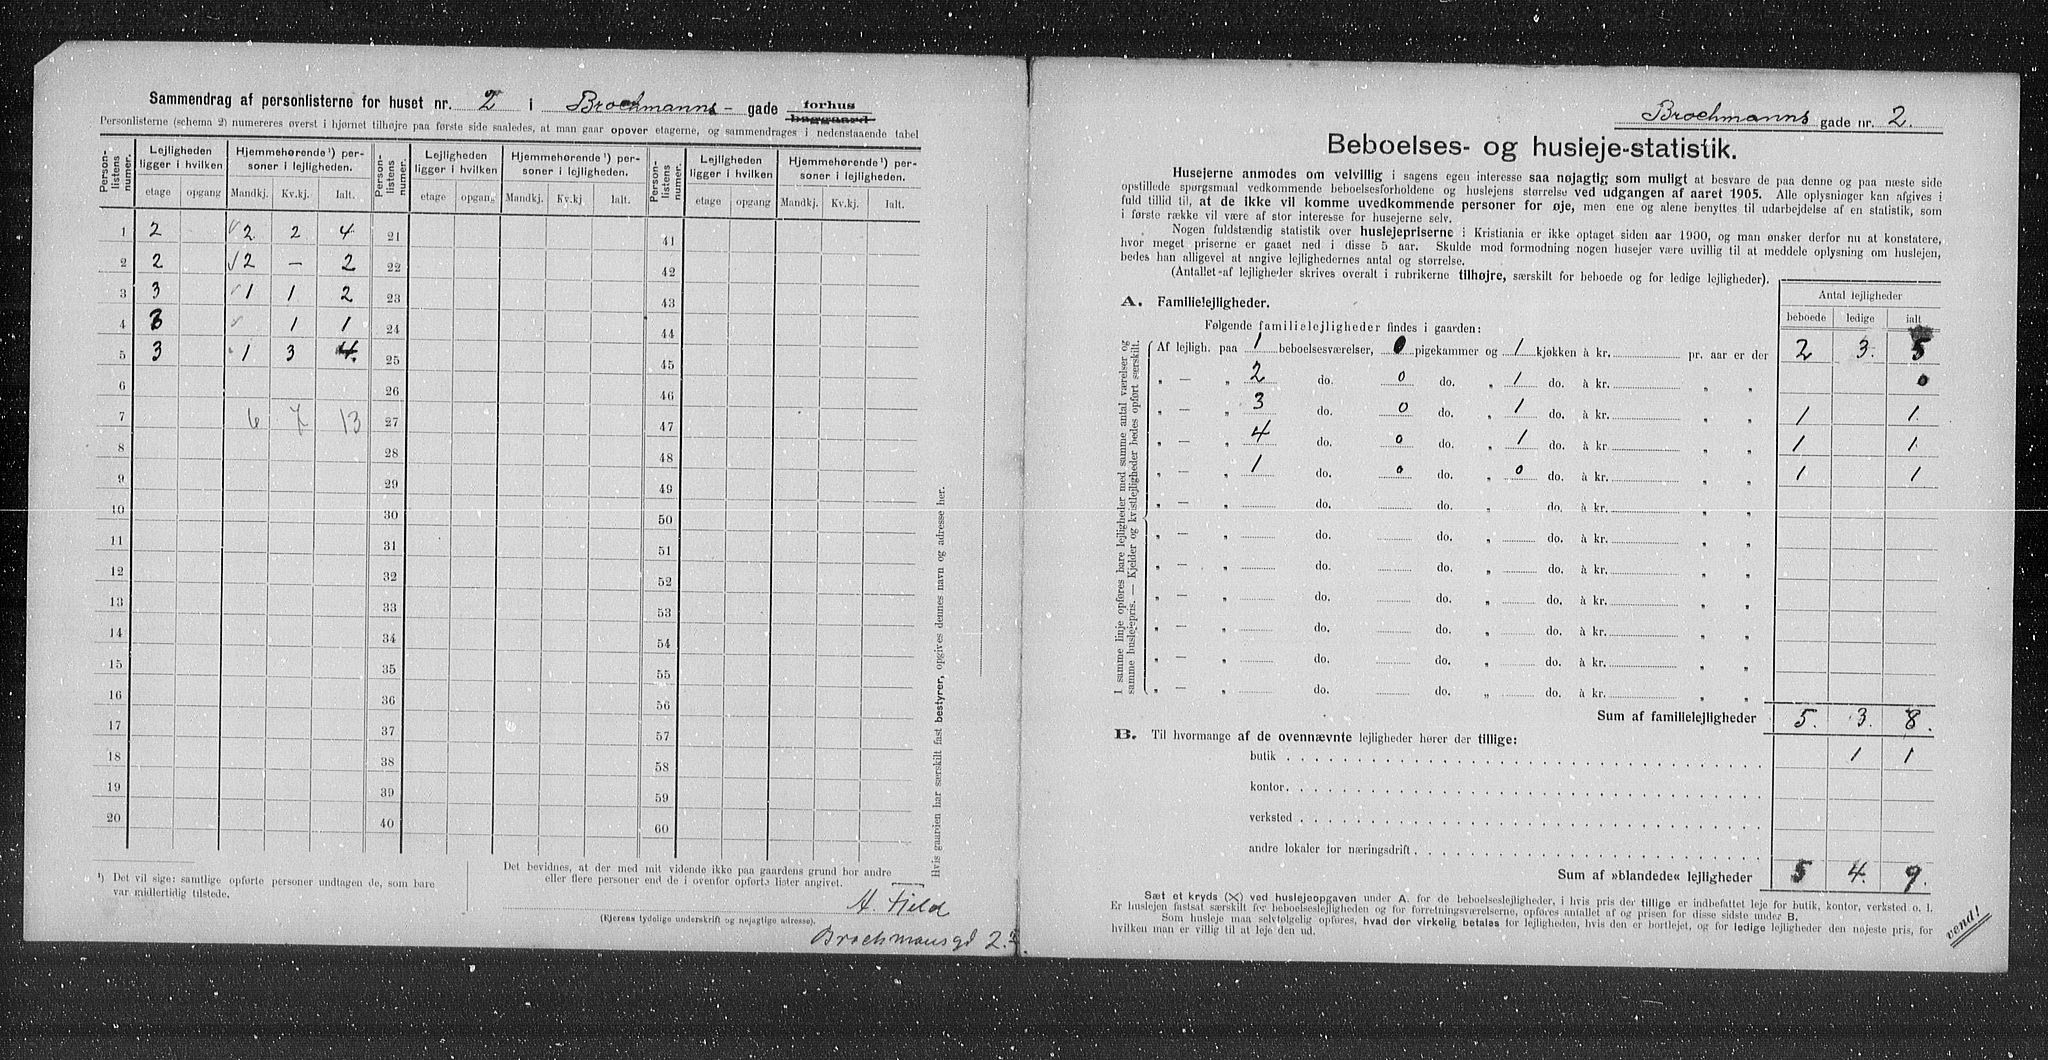 Sammendrag af personlisterne for huset nr. 2 i Brochmanns- gade forhus baggaard
Personlisterne (schema 2) numereres øverst i hjørnet tilhøjre paa første side saaledes, at man gaar opover etagerne, og sammendrages i nedenstaaende tabel
Person-listens numer. Lejligheden ligger i hvilken Hjemmehørende ¹) personer i lejligheden. Person-listens numer. Lejligheden ligger i hvilken Hjemmehørende ¹) personer i lejligheden. Person-listens numer. Lejligheden ligger i hvilken Hjemmehørende ¹) personer i lejligheden.
etage opgang Mandkj. Kv.kj. Ialt. etage opgang Mandkj. Kv.kj Ialt. etage opgang Mandkj. Kv.kj. Ialt.
1 2 2 2 4 21 41
2 2 2 — 2 22 42
3 3 1 1 2 23 43
4 3 1 1 24 44
5 3 1 3 4. 25 45
6 26 46
7 6 7 13 27 47
8 28 48
9 29 49
10 30 50
11 31 51
12 32 52
13 33 53
14 34 54
15 35 55
16 36 56
17 37 57
18 38 58
19 39 59
20 40 60
¹) Det vil sige: samtlige opførte personer undtagen de, som bare
var midlertidig tilstede.
Det bevidnes, at der med mit vidende ikke paa gaardens grund bor andre
eller flere personer end de i ovenfor opførte lister angivet.
A. Fjeld
(Ejerens tydelige underskrift og nøjagtige adresse).
Brochmansgd 2.
Hvis gaarden har særskilt fast bestyrer, opgives dennes navn og adresse her.
Brochmanns gade nr. 2.
Beboelses- og husleje-statistik.
Husejerne anmodes om velvillig i sagens egen interesse saa nøjagtig som muligt at besvare de paa denne og paa næste side
opstillede spørgsmaal vedkommende beboelsesforholdene og huslejens størrelse ved udgangen af aaret 1905. Alle oplysninger kan afgives i
fuld tillid til, at de ikke vil komme uvedkommende personer for øje, men ene og alene benyttes til udarbejdelse af en statistik, som
i første række vil være af stor interesse for husejerne selv.
Nogen fuldstændig statistik over huslejepriserne i Kristiania er ikke optaget siden aar 1900, og man ønsker derfor nu at konstatere,
hvor meget priserne er gaaet ned i disse 5 aar. Skulde mod formodning nogen husejer være uvillig til at meddele oplysning om huslejen,
bedes han alligevel at angive lejlighedernes antal og størrelse.
(Antallet af lejligheder skrives overalt i rubrikerne tilhøjre, særskilt for beboede og for ledige lejligheder).
A. Familielejligheder.
Antal lejligheder
Følgende familielejligheder findes i gaarden:
beboede ledige ialt
I samme linje opføres bare lejligheder med samme antal værelser og
samme huslejepris. — Kjelder og kvistlejligheder bedes opført særskilt.
Af lejligh. paa 1 beboelsesværelser, 0 pigekammer og 1 kjøkken à kr. pr. aar er der 2 3. 5
„ — „ 2 do. 0 do. „ 1 do. à kr. „ „ 0
„ — „ 3 do. 0 do. „ 1 do. à kr. „ „ 1 1.
„ — „ 4 do. 0 do. „ 1 do. à kr. „ „ 1 1.
„ — „ 1 do. 0 do. „ 0 do. à kr. „ „ 1 1
„ — „ do. do. „ do. à kr. „ „
„ — „ do. do. „ do. à kr. „ „
„ — „ do. do. „ do. à kr. „ „
„ — „ do. do. „ do. à kr. „ „
„ — „ do. do. „ do. à kr. „ „
„ — „ do. do. „ do. à kr. „ „
„ — „ do. do. „ do. à kr. „ „
Sum af familielejligheder 5. 3. 8.
B. Til hvormange af de ovennævnte lejligheder hører der tillige:
butik 1 1
kontor.
verksted
andre lokaler for næringsdrift
Sum af »blandede« lejligheder 5 4. 9.
Sæt et kryds (X) ved huslejeopgaven under A. for de beboelseslejligheder, i hvis pris der tillige er indbefattet leje for butik, kontor, verksted o. l.
Er huslejen fastsat særskilt for beboelseslejligheden og for forretningsværelserne, opføres antallet af og prisen for disse sidste under B.
Som husleje maa selvfølgelig opføres, hvad der virkelig betales for lejligheden, hvis den er bortlejet, og for ledige lejligheder den nøjeste pris, for
hvilken man er villig til at leje den ud.
vend!